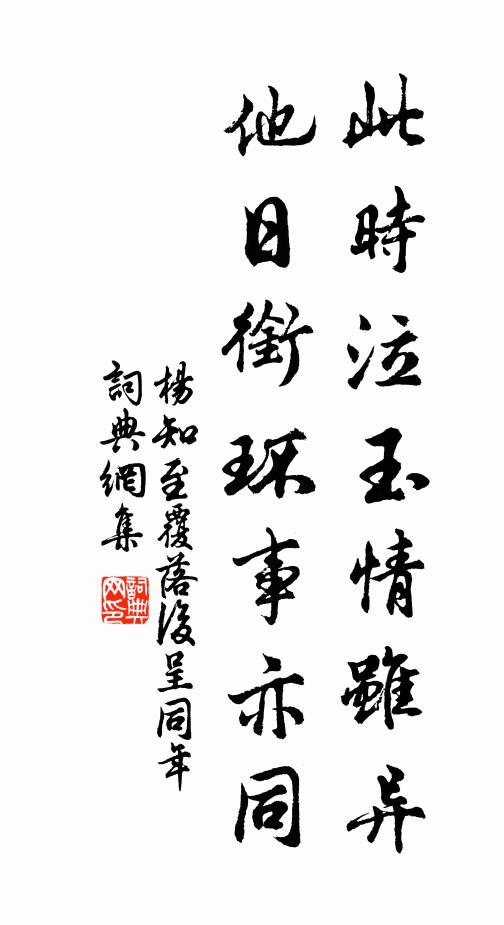 此時泣玉情雖异
他日銜环事亦同
楊知至覆落後呈同年
詞典網集
詞典網印